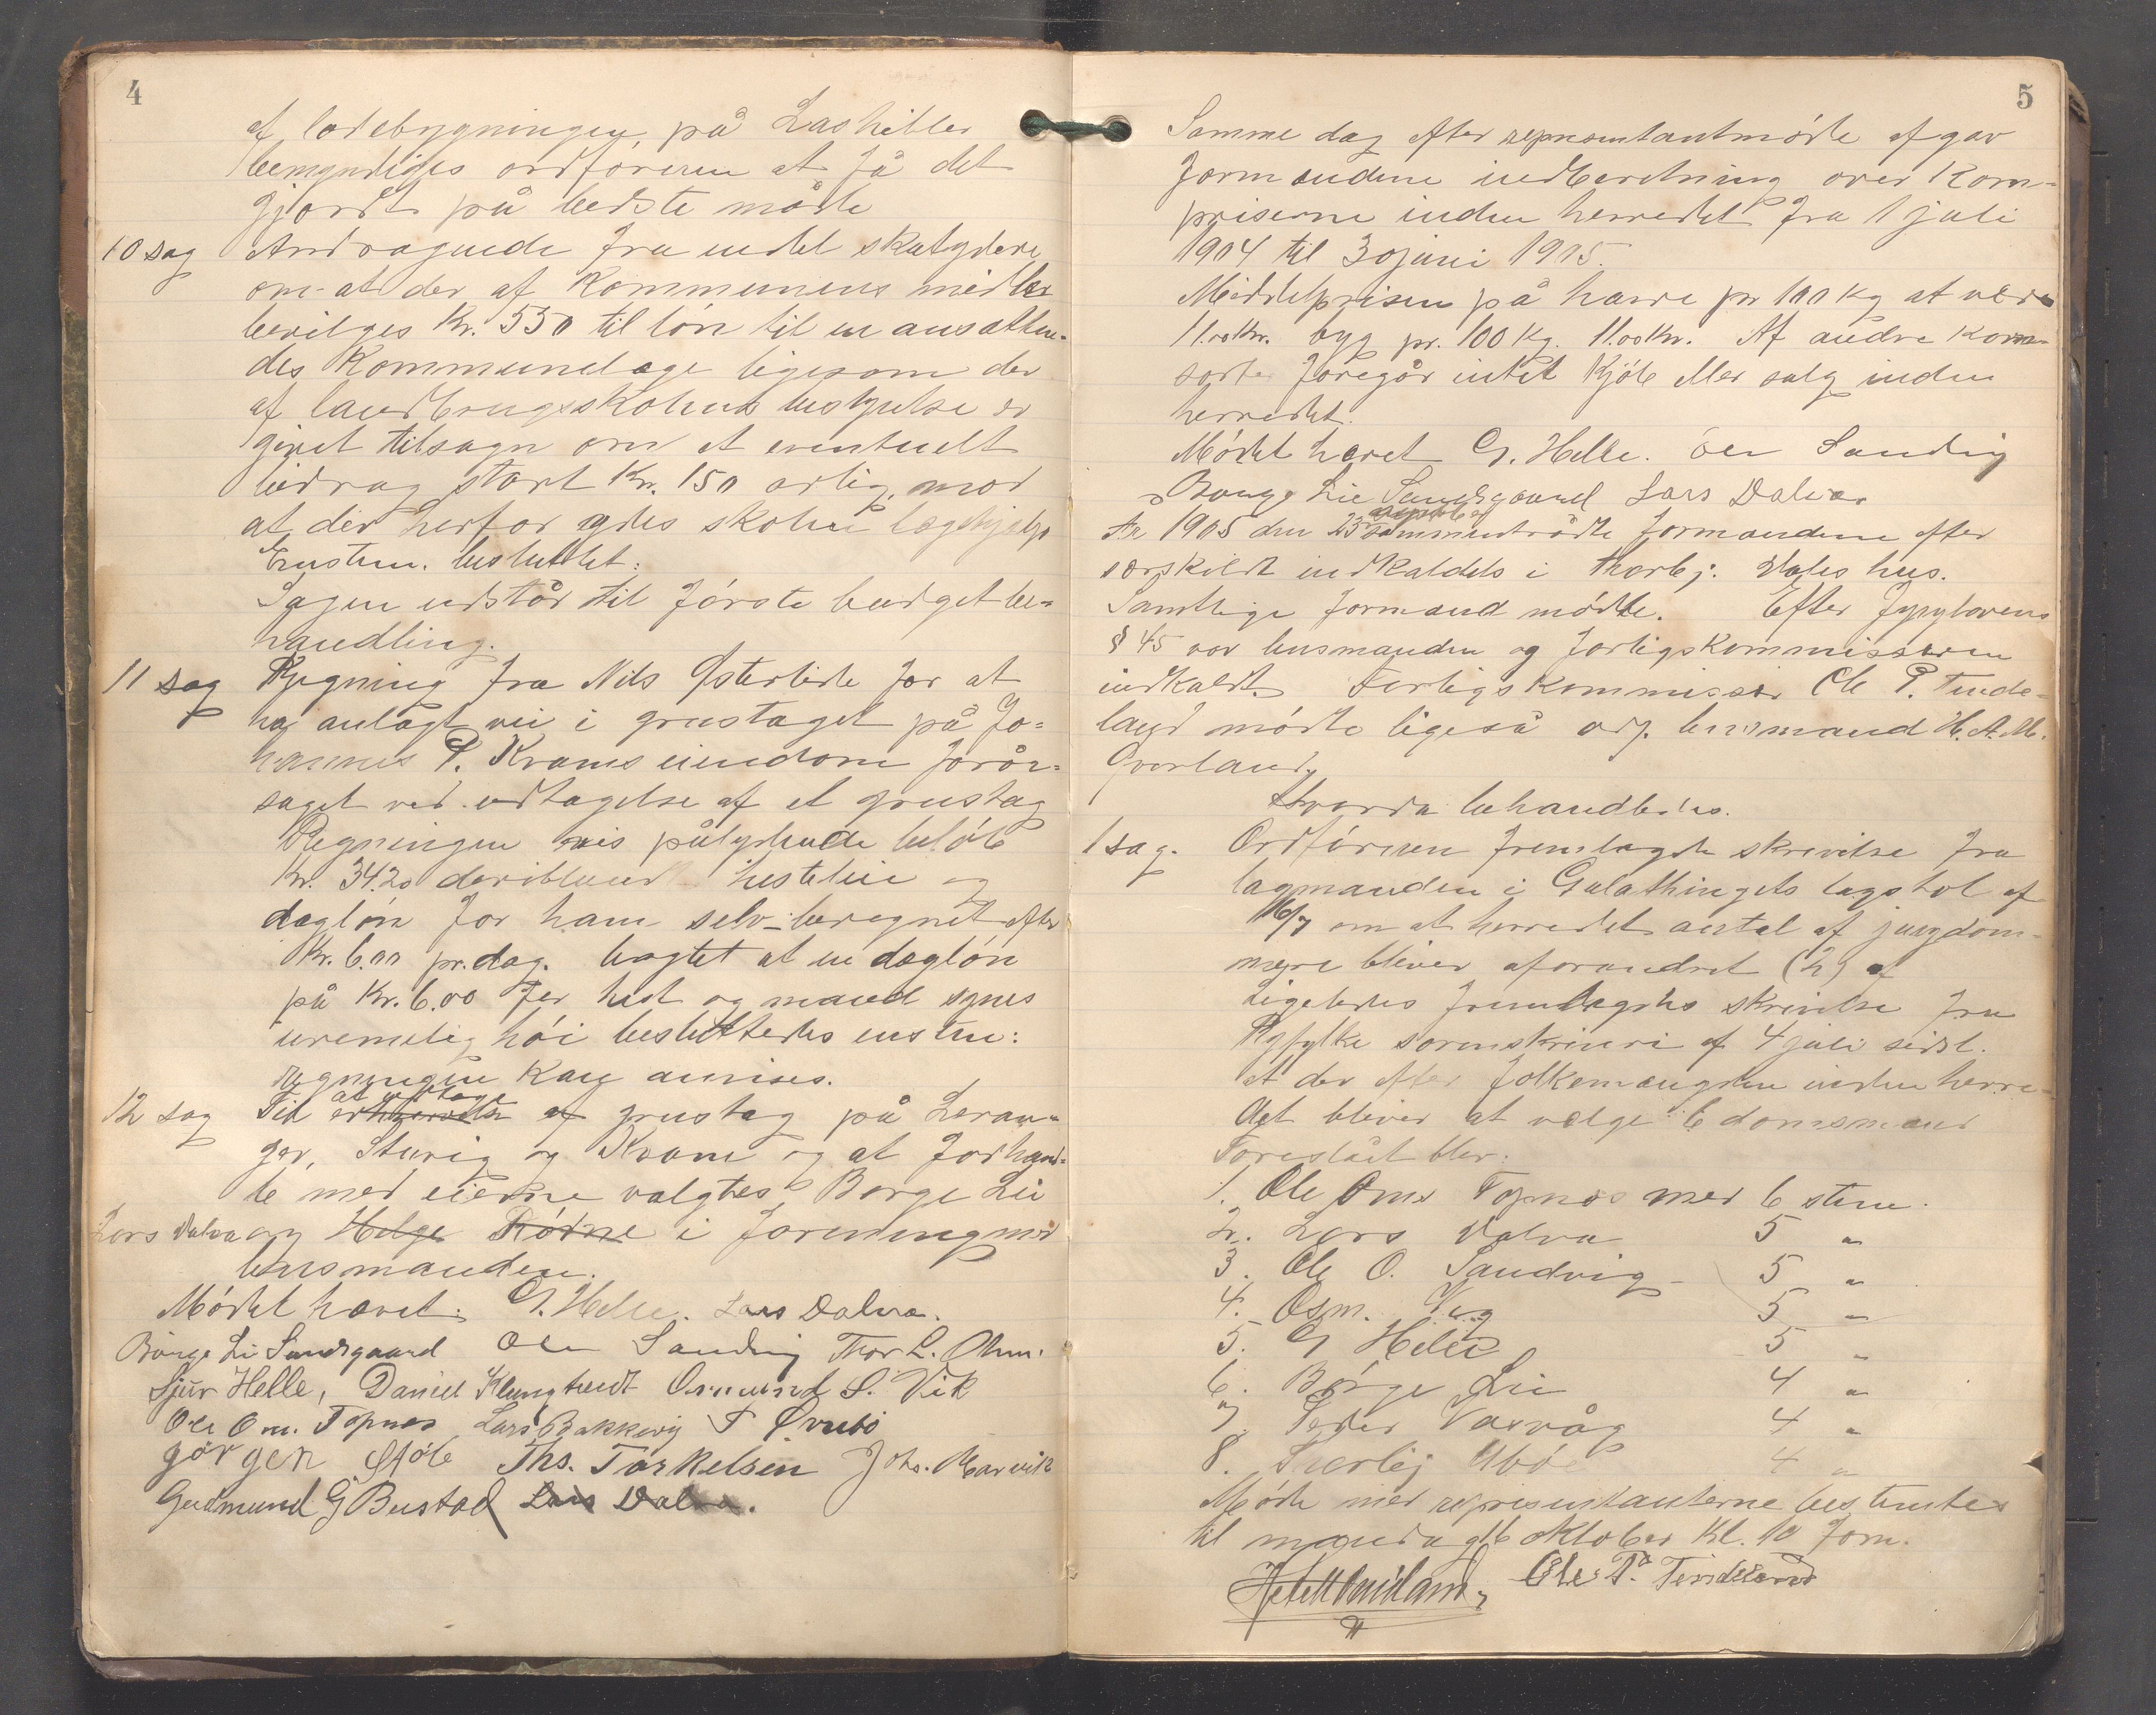 4
af ladebygningen på Lashibler
bemyndiges ordføreren at få det
gjordt på bedste måde
10 sag Andragende fra endel skatydere
om at der af Kommunens midler
bevilges Kr. 550 til løn til en ansætten-
des Kommunelæge ligesom der
af landbrugsskolens bestyrelse er
givet tilsagn om et eventuelt
bidrag stort Kr. 150 årlig, mod
at der herfor ydes skolen lægehjælp
Enstem. besluttet:
Sagen udstår til første budgetbe-
handling.
11 sag Regning fra Nils Østerlide for at
ha anlagt vei i grustaget på Jo-
hannes P. Krams eiendom forår-
saget ved udtagelse af et grustag
Regningen vis pålydende beløb
Kr. 34.20 deriblandt hesteleie og
dagløn for ham selv beregnet efter
Kr. 6.00 pr. dag. bagtet at en dagløn
på Kr. 6.00 for hest og mand synes
urimelig høi besluttedes enstem:
regningen Kan anvises.
at udtage
12 sag Tid erhvervelse af grustag på Leran-
ger, Stuvig og Kvam og at forhand-
le med eierne valgtes Børge Lii
Lars Dalva og Helge Rødne i forening med
lensmanden.
Mødet hævet. G. Helle. Lars Dalva.
Børge Lii Sandsgaard Ole Sandvig Thor L. Ohm.
Sjur Helle, Daniel Klungtveit Osmund S. Vik
Ole Om. Topnes Lars Bakkevig T Øvrebø
Jørgen Støle Ths. Torkelsen Johs. Marvik
Gudmund G Bustad Lars Dalva.
5
Samme dag efter representantmøde afgav
formændene indberetning over Korn-
priserne inden herredet fra 1 juli
1904 til 30 juni 1905.
Middelprisen på havre pr 100 kg at være
11.00 Kr. byg pr. 100 Kg. 11.00 Kr. Af andre Korn-
sorter foregår intet Kjøb eller salg inden
herredet.
Mødet hævet G. Helle. Ole Sandvig
Børge Lie Sandsgaard Lars Dalva
september
År 1905 den 23 sammentrådte formændene efter
særskildt indkaldels i Thorbj. Ubøs hus.
Samtlige formænd mødte. Efter Jyrylovens
§ 45 var lensmanden og forligskommissæren
indkaldt. Forligskommissær Ole P. Tinde-
land mødte ligeså adj. lensmand H. A. M.
Øverland,
Hvorda behandledes.
1 sag. Ordføreren fremlagde skrivelse fra
lagmanden i Gulathingets lagstol af
16/7 om at herredets antal af jurydom-
mere bliver uforandret (2) og
Ligeledes fremlagdes skrivelse fra
Ryfylke sorenskriveri af 4 juli sidst.
at der efter folkemængden inden herre-
det bliver at vælge 6 domsmænd
Foreslået blev:
1. Ole Oms Topnes med 6 stem.
2. Lars Dalva 5 "
3. Ole O. Sandvig 5 "
4. Osm. Vig 5 "
5. G Helle 5 "
6. Børge Lii 4 "
7. Peder Vasvåg 4 "
8. Thorbj Ubø 4 "
Møde med representanterne bestemtes
til mandag d 16 oktober Kl. 10 form.
Ole P. Tindeland